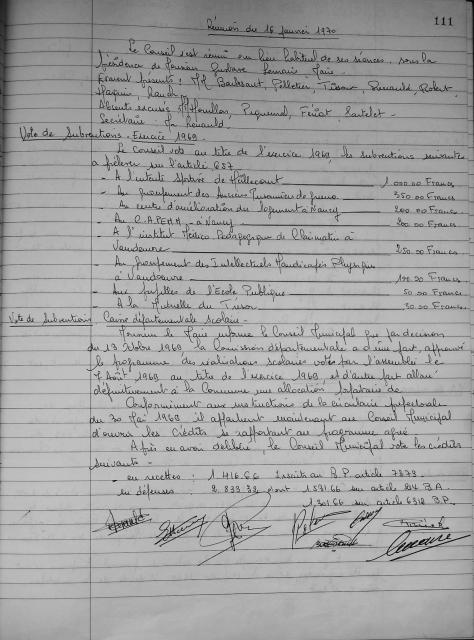 111
Réunion du 16 Janvier 1970
Le Conseil s'est réuni au lieu habituel de ses séances, sous la
Présidence de Monsieur Gustave Lemaire Maire.
Etaient présents : MM Pelletier, Renauld, Robert,
Absents excusés
Secrétaire : Mr Renauld
Vote de Subventions - Exercice 1969
Le Conseil vote au titre de l'exercice 1969, les subventions suivantes
à prélever sur l'article 657
- A l'intente Sportive de 1 000.00 Francs
- Au groupement des Anciens Prisonniers de guerre 350.00 Francs
- Au centre d'amélioration du logement à Nancy 200.00 Francs
- Au C.A.P.E.M.M - à Nancy 200.00 Francs
- A l'institut Médico Pédagogique de à
Vandoeuvre 250.00 Francs
- Au groupement des Intellectuels Handicapés Physique
à Vandoeuvre 100.00 Francs
- Aux pupilles de l'Ecole Publique 50.00 Francs
- A la Mutuelle du Trésor 30.00 Francs
Vote de Subvention Caisse départementale scolaire -
Monsieur le Maire informe le Conseil Municipal que par décision
du 13 Octobre 1969 la Commission départementale a d'une part, approuvé
le programme des réalisations scolaires votées par l'assemblée le
7 Août 1969 au titre de l'exercice 1969, et d'autre part alloué
définitivement à la Commune une allocation forfataire de
Conformément aux instructions de la circulaire préfectorale
du 30 Mai 1969 il appartient maintenant au Conseil Municipal
d'ouvrir les Crédits se rapportant au programme agréé
Après en avoir délibéré, le Conseil Municipal vote les crédits
suivants -
- en recettes : 1 416.66 Inscrits au B.P. article 7373
en dépenses : 2.833.32 dont 1 531.66 sur article 214 B.A
1 301.66 sur article 6312 B.P.